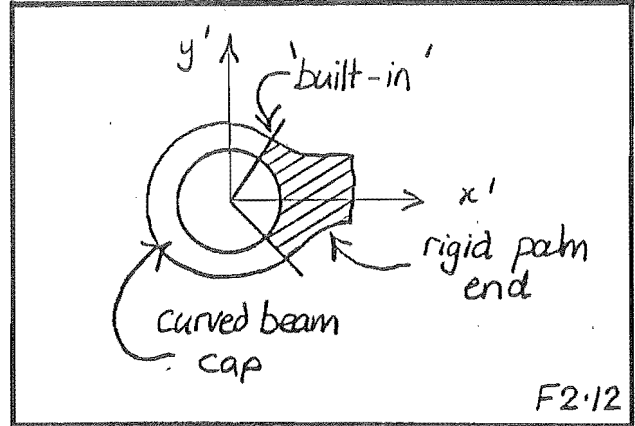 y'
'built-in'
x'
rigid palm
end
curved beam
cap
F2.12